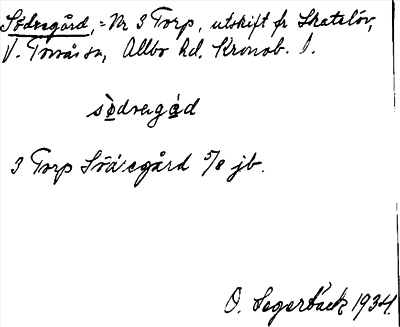 Södregård, = Nr 3 Torp, utskift fr Skatelöv,
V. Torsås sn, Allbo hd. Kronob. l.
södregåd
3 Torp Södregård 5/8 jb.
O. Segerbäck 1934.